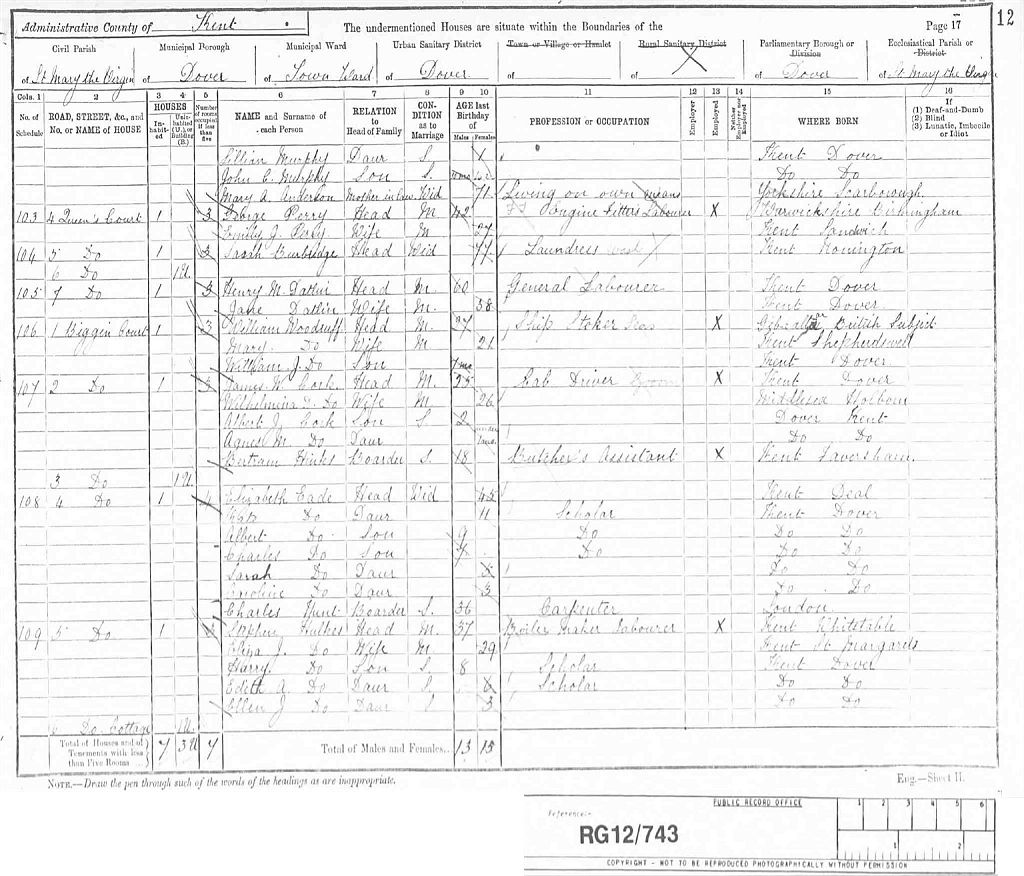 12
Administrative County of Kent
The undermentioned Houses are situate within the Boundaries of the
Page 17
Civil Parish
Municipal Borough
Municipal Ward
Urban Sanitary District
Town or Village or Hamlet
Rural Sanitary District
Parliamentary Borough or Division
Ecclesiastical Parish or District
of St Mary the Virgin of Dover of Town Ward of Dover of of of Dover of St Mary the Virgin
Cols. 1 2 3 4 5 6 7 8 9 10 11 12 13 14 15 16
No. of Schedule
ROAD, STREET, &c., and No. or NAME of HOUSE
HOUSES
Inhabited
Uninhabited (U.), or Building (B.)
Number of rooms occupied if less than five
NAME and Surname of each Person
RELATION to Head of Family
CONDITION as to Marriage
AGE last Birthday of
Males Females
PROFESSION or OCCUPATION
Employer
Employed
Neither Employer nor Employed
WHERE BORN
If
(1) Deaf-and-Dumb
(2) Blind
(3) Lunatic, Imbecile or Idiot
Lillian Murphy Daur S. 1 Kent Dover
John C. Murphy Son S. Do Do
Mary A. Anderson Mother in law Wid 71 Living on own means Yorkshire Scarborough
103 4 Queen's Court 1 3 George Perry Head M 42 Engine Fitters Labourer X Warwickshire Birmingham
Emily J. Perry Wife M 27 Kent Sandwich
104 5 Do 1 2 Sarah Burbridge Head Wid 77 Laundress Kent Nonington
6 Do 1U
105 7 Do 1 3 Henry M. Datlin Head M. 60 General Labourer Kent Dover
Jane Datlin Wife M. 58 Kent Dover
106 1 Biggin Court 1 3 William Woodruff Head M. 27 Ship Stoker X Gibraltar British Subject
Mary Do Wife M 21 Kent Shepherdswell
William J. Do Son 7mo Kent Dover
107 2 Do 1 James W. Cork Head M. 25 Cab Driver Groom X Kent Dover
Wilhelmina Do Wife M 26 Middlesex Holborn
Albert J. Cork Son S 2 Dover Kent
Agnes M. Do Daur under 1mo. Do Do
Bertram Hinks Boarder S. 18 Butcher's Assistant X Kent Faversham.
3 Do 1U
108 4 Do 1 4 Elizabeth Eade Head Wid 45 Kent Deal
Kate Do Daur 11 Scholar Kent Dover
Albert Do Son 9 Do Do Do
Charles Do Son 7 Do Do Do
Sarah Do Daur 5 Do Do
Caroline Do Daur 3 Do Do
Charles Hunt Boarder S. 36 Carpenter London
109 5 Do 1 4 Stephen Hulkes Head M. 37 Boiler maker Labourer X Kent Whitstable
Eliza J. Do Wife M 29 Kent St Margarets
Harry Do Son S. 8 Scholar Kent Dover
Edith A. Do Daur S. 6 Scholar Do Do
Ellen J Do Daur S 3 Do Do
Do Cottage 1U.
Total of Houses and of Tenements with less than Five Rooms 7 3U 7
Total of Males and Females.. 13 15
NOTE.—Draw the pen through such of the words of the headings as are inappropriate.
Eng.—Sheet H.
PUBLIC RECORD OFFICE
1 2 3 4 5 6
Reference:-
RG12/743
1 2
COPYRIGHT - NOT TO BE REPRODUCED PHOTOGRAPHICALLY WITHOUT PERMISSION